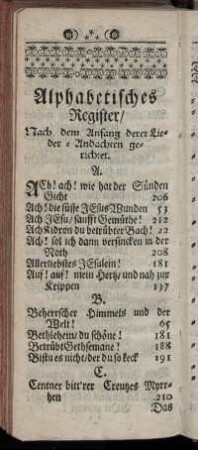 Alphabetisches
Register/
Nach dem Anfang derer Lie-
der-Andachten ge-
richtet.
A.
ACh! ach! wie hat der Sünden
Gicht 206
Ach! die süsse JEsus Wunden 53
Ach JEsu/ sanfft Gemüthe! 212
Ach Kidron du betrübter Bach! 22
Ach! sol ich dann versincken in der
Noth 208
Allerliebstes JEsulein! 181
Auf! auf! mein Hertze und nah zur
Krippen 137
B.
Beherrscher Himmels und der
Welt! 65
Bethlehem/ du schöne! 181
Betrübt Gethsemane! 188
Bistu es nicht/ der du so keck 191
C.
Centner bitt'rer Creutzes Myrr-
hen 210
Das